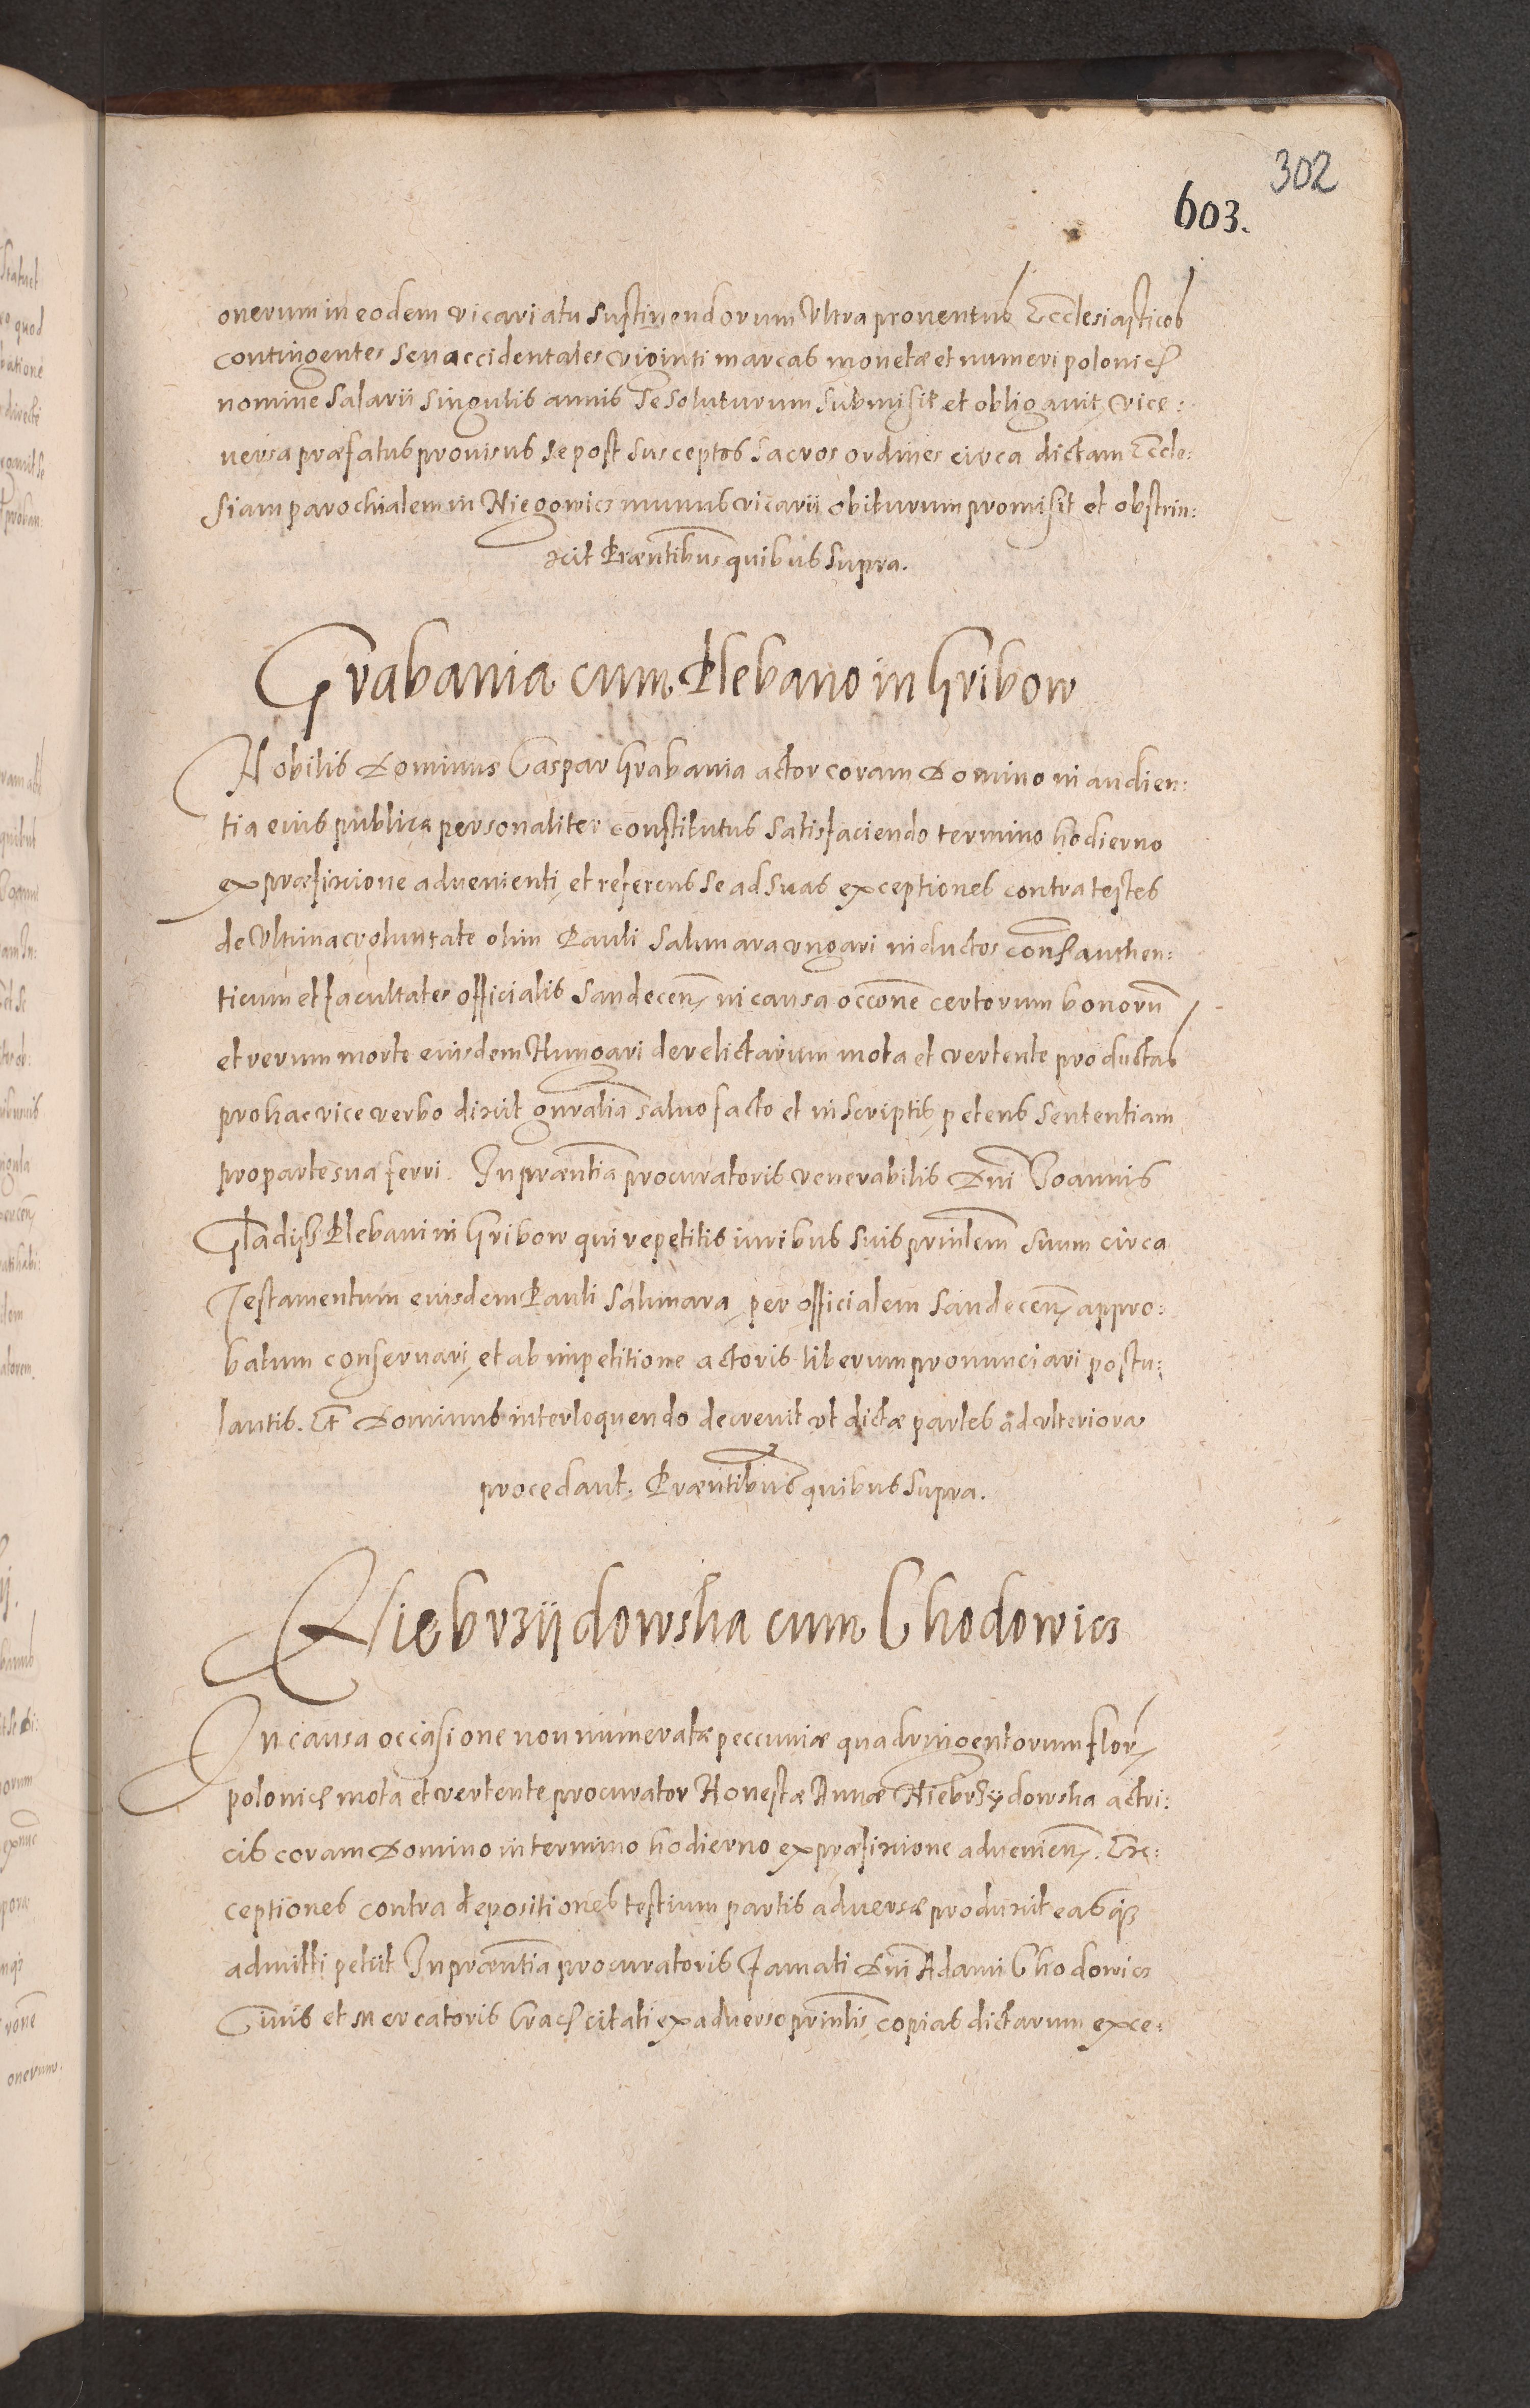 302
603.
onerum in eodem vicariatu sustinendorum Ultra proventus Ecclesiasticos
contingentes seu accidentales viginti marcas monetæ et numeri polonicę
nomine Salarii singulis annis se soluturum submisit et obligavit, vice:
versa præfatus provisus se post susceptos sacros ordines circa dictam Eccle:
siam parochialem in Niegowicz munus vicarii obiturum promisit et obstrin:
xit Præntibus quibus supra.
Grabania cum Plebano in Gribow
Nobilis Dominus Caspar Grabania actor coram Domino in audien:
tia eius publica personaliter constitutus satisfaciendo termino hodierno
ex præfixione advenienti, et referens se ad suas exceptiones contra testes
de Ultima voluntate olim Pauli Salmara Ungari inductos authen:
ticum et facultates officialis Sandecen, in causa occone certorum bonoru
et rerum morte eiusdem Hungari derelictarum mota et vertente productas
pro hac vice verbo dixit gnralia salvo facto et in scriptis, petens sententiam
pro parte sua ferri. In præntia procuratoris venerabilis Dni Joannis
Gladijsz Plebani in Gribow qui repetitis iuribus suis prinlem suum circa
Testamentum eiusdem Pauli Salmara, per officialem Sandecen, appro:
batum conservari, et ab impetitione actoris liberum pronunciari postu:
lantis. Et Dominus interloquendo decrevit ut dictæ partes ad ulteriora
procedant. Præntibus quibus supra.
Niebrzijdowska cum Chodowicz
In causa occasione non numeratæ peccuniæ quadringentorum flor,
polonicę mota et vertente procurator Honestæ Annæ Niebrzydowska actri:
cis coram Domino in termino hodierno ex præfixione advenien, Exc:
ceptiones contra depositiones testium partis adversæ produxit easq3
admitti petiit In præntia procuratoris Famati Dni Adami Chodowicz
Civis et Mercatoris Cracę citati ex adverso prinlis copias dictarum exce: